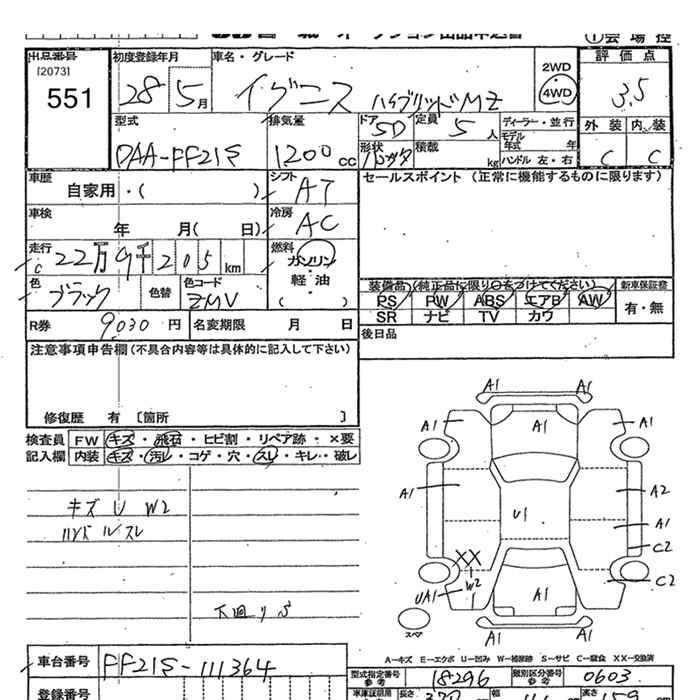 出品番号 初度登録年月 車名・グレード 2WD 評価点
[2073] 551 28 5月 イグニス ハイブリッドMZ 4WD 3.5
型式 排気量 ドア 5D 定員 5人 ディーラー・並行 外装 内装
DAA-FF21S 1200cc 形状 積載 kg モデル年式 年 C C
ハンドル 左・右
車歴 自家用・( ) シフト AT セールスポイント (正常に機能するものに限ります)
車検 年 月( 日) 冷房 AC
走行 22万9千205km 燃料 ガソリン
軽・油
( )
色 ブラック 色替 色コード ZMV
装備品(純正品に限り○をつけてください) 新車保証書
PS PW ABS エアB AW 有・無
SR ナビ TV カワ
R券 9030円 名変期限 月 日 後日品
注意事項申告欄(不具合内容等は具体的に記入して下さい)
修復歴 有 [箇所 ]
検査員 FW キズ・飛石・ヒビ割・リペア跡・×要
記入欄 内装 キズ・汚レ・コゲ・穴・スレ・キレ・破レ
キズ U W2
ハンドルスレ
下廻りS
A1 A1
A1 A1 A1
A1 A2
U1 A1
C2
XX
W2 C2
UA1 A1
スペア
A1 A1
A-キズ E-エクボ U-凹み W-補修跡 S-サビ C-腐食 XX-交換済
車台番号 FF21S-111364
型式指定番号 参考 18296 類別区分番号 参考 0603
登録番号
長さ 幅